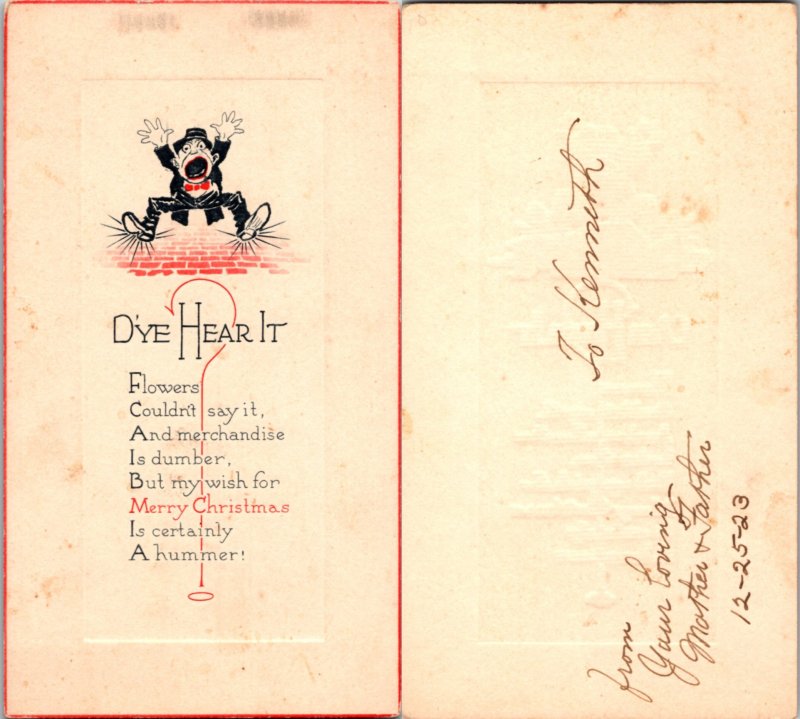 D'YE HEAR IT
Flowers
Couldn't say it,
And merchandise
Is dumber,
But my wish for
Merry Christmas
Is certainly
A hummer!
To Kenneth
from
Your Loving
Mother & Father
12-25-23